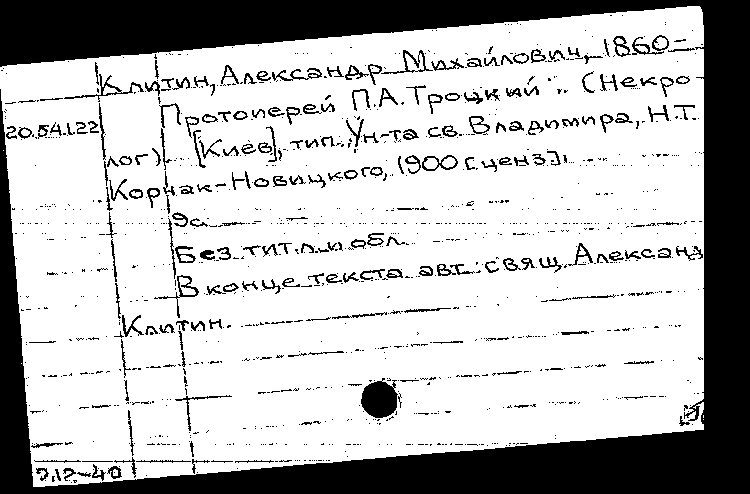 Клитин, Александр Михайлович, 1860-
Протоиерей П.А. Троцкий. (Некро-
20.54.1.22
лог). [Киев], тип. Ун-та св. Владимира, Н.Т.
Корчак-Новицкого, 1900 [ценз].
9с.
Без тит. л. и обл.
В конце текста авт.: свящ. Александ
Клитин.
9.12-40